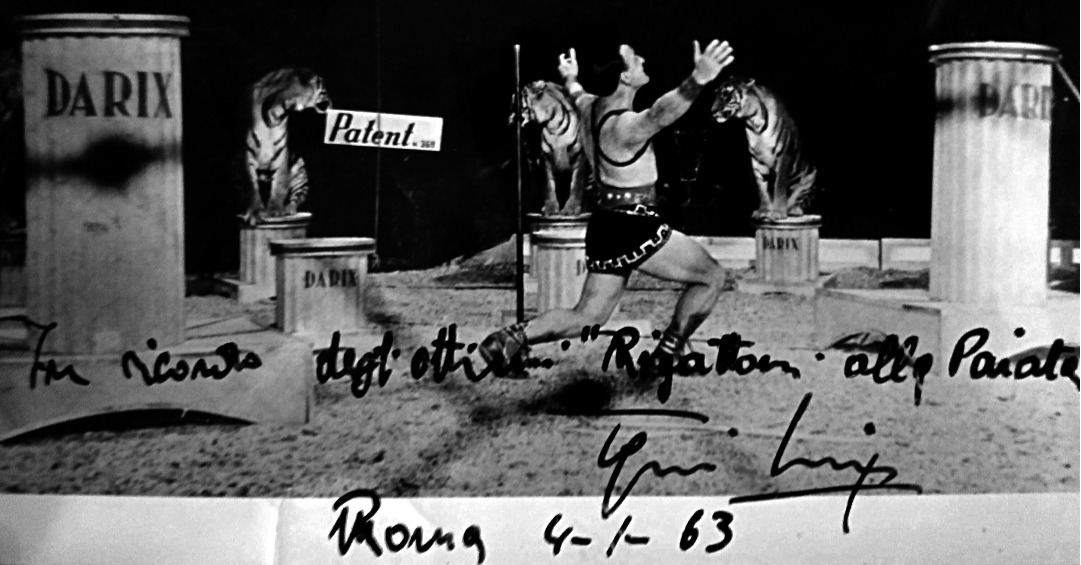 DARIX
DARIX
Patent. N. 369
DARIX
D
DARIX
In ricordo degli ottimi "Rigatoni" alla Pajata
Roma 4-1-63